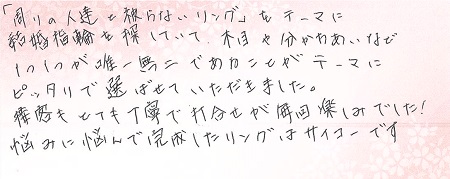 「周りの人達と被らないリング」をテーマに
結婚指輪を探していて、木目や分かちあいなど
1つ1つが唯一無二であることがテーマに
ピッタリで選ばせていただきました。
接客もとても丁寧で打合せが毎回楽しみでした!
悩みに悩んで完成したリングはサイコーです